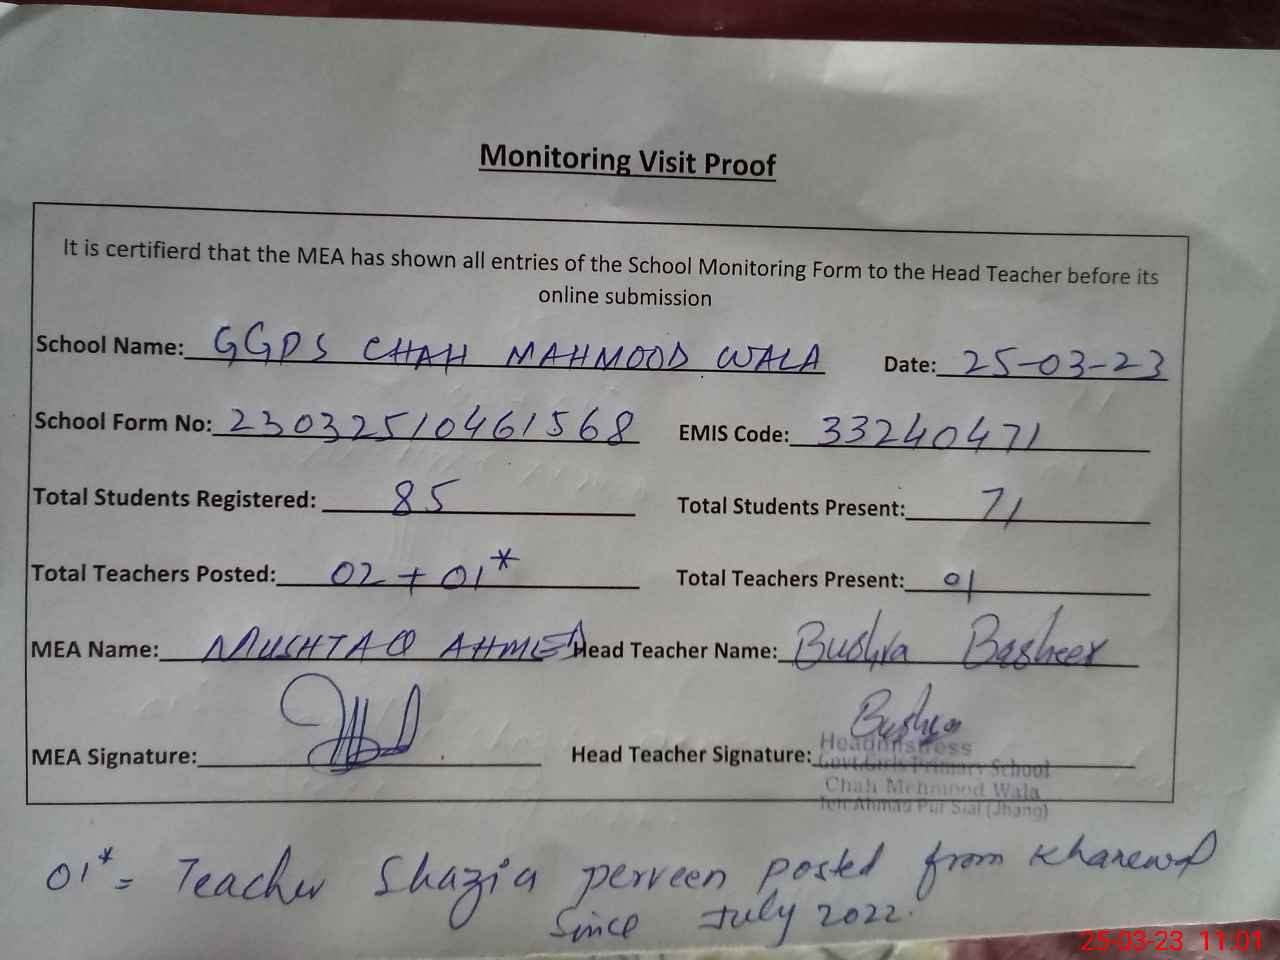 Monitoring Visit Proof
It is certifierd that the MEA has shown all entries of the School Monitoring Form to the Head Teacher before its
online submission
School Name: GGPS CHAH MAHMOOD WALA Date: 25-03-23
School Form No: 23032510461568 EMIS Code: 33240471
Total Students Registered: 85 Total Students Present: 71
Total Teachers Posted: 02 + 01* Total Teachers Present: 01
MEA Name: MUSHTAQ AHMED Head Teacher Name: Bushra Basheer
MEA Signature: Head Teacher Signature: Bushra
Headmistress
Govt.Girls Primary School
Chah Mehmood Wala
Teh:Ahmad Pur Sial (Jhang)
01* = Teacher Shazia perveen posted from Khanewal
Since July 2022.
25-03-23 11:01